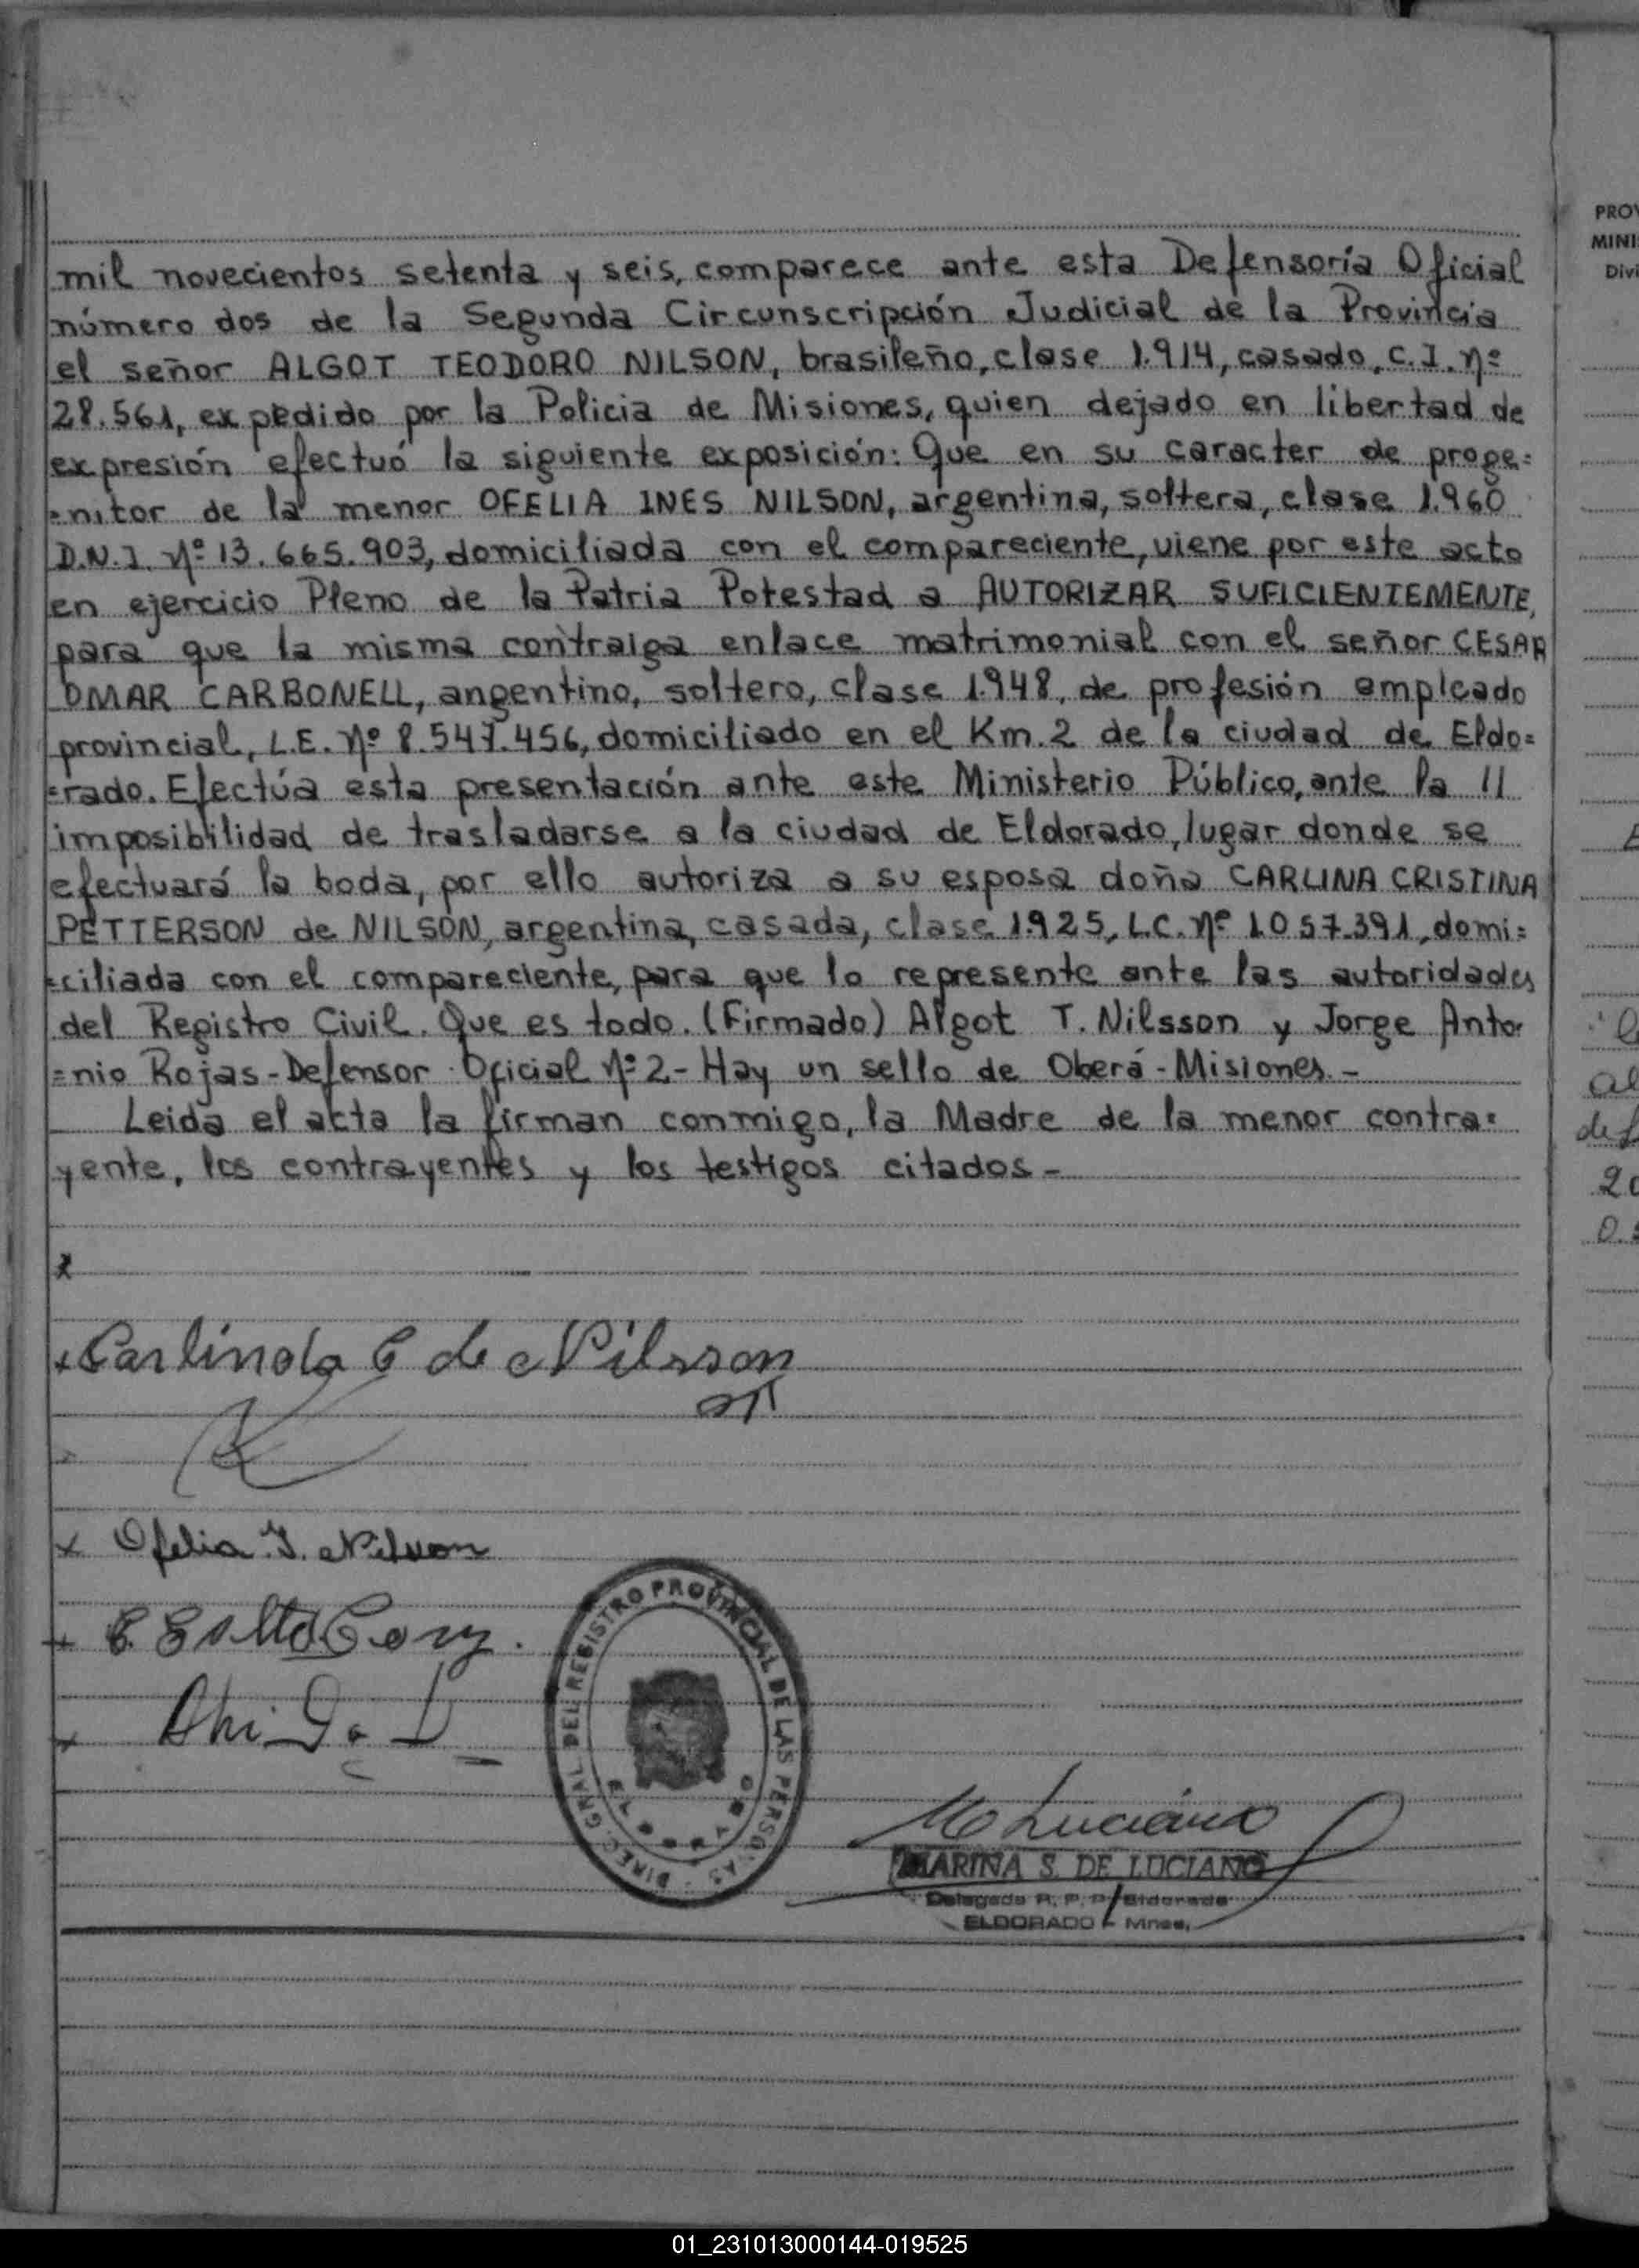 mil novecientos setenta y seis, comparece ante esta Defensoría Oficial
número dos de la Segunda Circunscripción Judicial de la Provincia
el señor ALGOT TEODORO NILSON, brasileño, clase 1.914, casado, C.I. Nº
28.561, expedido por la Policia de Misiones, quien dejado en libertad de
expresión efectuó la siguiente exposición: Que en su caracter de proge=
=nitor de la menor OFELIA INES NILSON, argentina, soltera, clase 1.960
D.N.I. Nº 13.665.903, domiciliada con el compareciente, viene por este acto
en ejercicio Pleno de la Patria Potestad a AUTORIZAR SUFICIENTEMENTE,
para que la misma contraiga enlace matrimonial con el señor CESAR
OMAR CARBONELL, angentino, soltero, clase 1.948, de profesión empleado
provincial, L.E. Nº 8.547.456, domiciliado en el Km. 2 de la ciudad de Eldo=
=rado. Efectúa esta presentación ante este Ministerio Público, ante la //
imposibilidad de trasladarse a la ciudad de Eldorado, lugar donde se
efectuará la boda, por ello autoriza a su esposa doña CARLINA CRISTINA
PETTERSON de NILSON, argentina, casada, clase 1.925, L.C. Nº 1.057.391, domi=
=ciliada con el compareciente, para que lo represente ante las autoridades
del Registro Civil. Que es todo. (Firmado) Algot T. Nilsson y Jorge Anto=
=nio Rojas - Defensor Oficial Nº 2 - Hay un sello de Oberá - Misiones. -
Leida el acta la firman conmigo, la Madre de la menor contra=
yente, los contrayentes y los testigos citados -
x
x Carlinda C de Nilsson
x Ofelia I. Nilsson
x
x
DIREC. GRAL. DEL REGISTRO PROVINCIAL DE LAS PERSONAS
M Luciano
MARINA S. DE LUCIANO
Delegada R. P. P. Eldorado
ELDORADO - Mnes.
PROV
MINI
Divi
al
de
20
0.
01_231013000144-019525